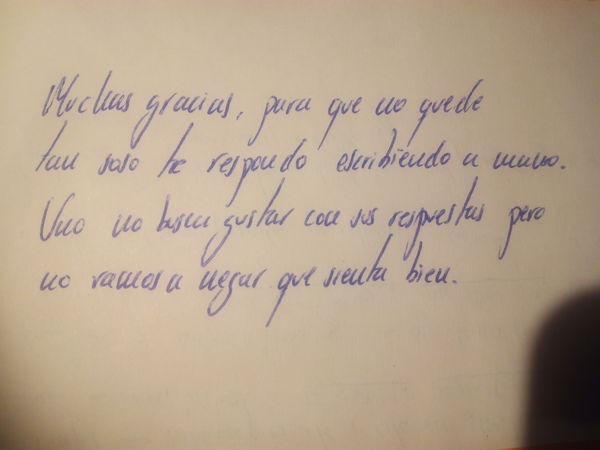 Muchas gracias, para que no quede
tan soso te respondo escribiendo a mano.
Uno no busca gustar con sus respuestas pero
no vamos a negar que sienta bien.